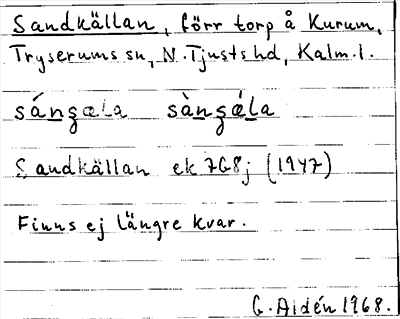 Sandkällan, förr torp å Kurum,
Tryserums sn, N. Tjusts hd, Kalm. l.
sángæla sàngǽla
Sandkällan ek 7G8j (1947)
Finns ej längre kvar.
G. Aldén 1968.